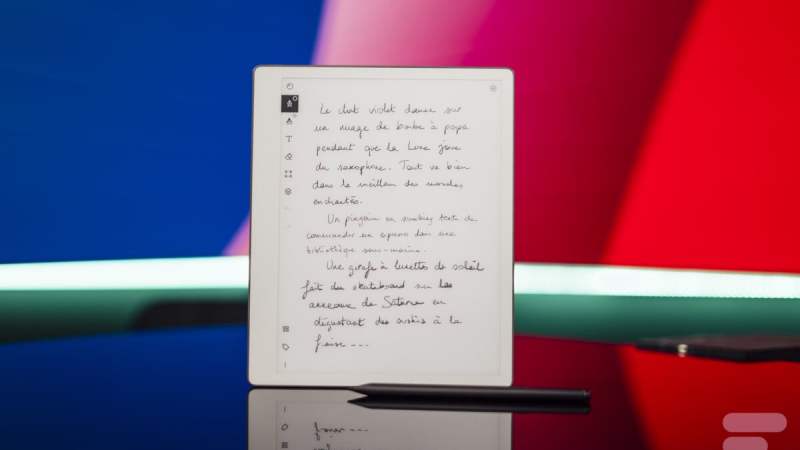 Le chat violet danse sur
un nuage de barbe à papa
pendant que la Lune joue
du saxophone. Tout va bien
dans le meilleur des mondes
enchantés.
Un pingouin en smoking tente de
commander un espresso dans une
bibliothèque sous-marine.
Une girafe à lunettes de soleil
fait du skateboard sur les
anneaux de Saturne en
dégustant des sushis à la
fraise...